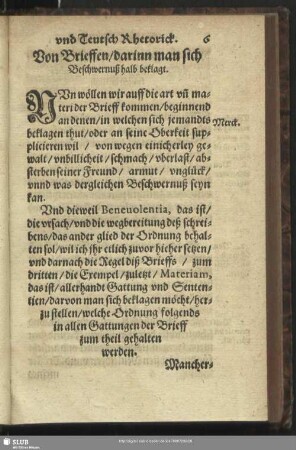 vnd Teutsch Rhetorick. 6
Von Brieffen/darinn man sich
Beschwernuß halb beklagt.
NVn wöllen wir auff die art vñ ma-
teri der Brieff kommen/beginnend
an denen/in welchen sich jemandts
Merck.
beklagen thut/oder an seine Oberkeit sup-
plicieren wil / von wegen einicherley ge-
walt/vnbillicheit/schmach/vberlast/ab-
sterben seiner Freund/ armut/ vnglück/
vnnd was dergleichen Beschwernuß seyn
kan.
Vnd dieweil Beneuolentia, das ist/
die vrsach/vnd die wegbereitung deß schrei-
bens/das ander glied der Ordnung behal-
ten sol/wil ich jhr etlich zuvor hieher setzen/
vnd darnach die Regel diß Brieffs / zum
dritten/die Exempel/zuletzt/Materiam,
das ist/allerhandt Gattung vnd Senten-
tien/darvon man sich beklagen möcht/her-
zu stellen/welche Ordnung folgends
in allen Gattungen der Brieff
zum theil gehalten
werden.
Mancher-
SLUB
Wir führen Wissen.